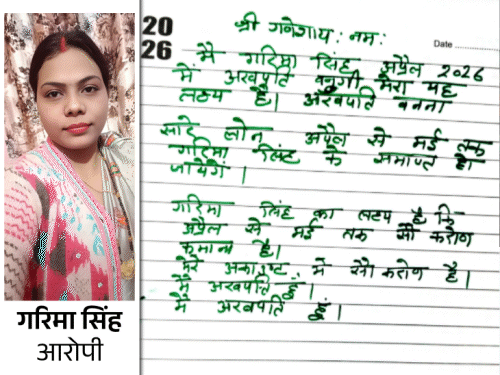 गरिमा सिंह
आरोपी
20
26
Date
श्री गणेशाय: नम:
मै गरिमा सिंह अप्रैल 2026
में अरबपति बनुगी मेरा यह
लक्ष्य है। अरबपति बनना
सारे लोन अप्रैल से मई तक
गरिमा सिंह के समाप्त हो
जायेंगे ।
गरिमा सिंह का लक्ष्य है कि
अप्रैल से मई तक सौ करोण
कमाना है।
मेरे अकाउण्ट मे सौ करोण है।
मै अरबपति हूं।
मै अरबपति हूं।